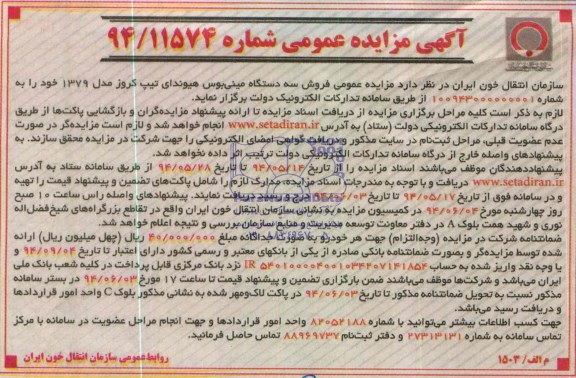 آگهی مزایده عمومی شماره ۹۴/۱۱۵۷۴
سازمان انتقال خون ایران در نظر دارد مزایده عمومی فروش سه دستگاه مینی‌بوس هیوندای تیپ کروز مدل ۱۳۷۹ خود را به
شماره ۱۰۰۹۴۳۰۰۰۰۰۰۰۰۱ از طریق سامانه تدارکات الکترونیک دولت برگزار نماید.
لازم به ذکر است کلیه مراحل برگزاری مزایده از دریافت اسناد مزایده تا ارائه پیشنهاد مزایده‌گران و بازگشایی پاکت‌ها از طریق
درگاه سامانه تدارکات الکترونیکی دولت (ستاد) به آدرس www.setadiran.ir انجام خواهد شد و لازم است مزایده‌گر در صورت
عدم عضویت قبلی، مراحل ثبت‌نام در سایت مذکور و دریافت گواهی امضای الکترونیکی را جهت شرکت در مزایده محقق سازند. به
پیشنهادهای واصله خارج از درگاه سامانه تدارکات الکترونیکی دولت ترتیب اثر داده نخواهد شد.
پیشنهاددهندگان موظف می‌باشند اسناد مزایده را از تاریخ ۹۴/۰۵/۱۴ تا تاریخ ۹۴/۰۵/۲۸ از طریق سامانه ستاد به آدرس
www.setadiran.ir دریافت و با توجه به مندرجات اسناد مزایده، مدارک لازم را شامل پاکت‌های تضمین و پیشنهاد قیمت را تهیه
و در سامانه فوق از تاریخ ۹۴/۰۵/۱۷ تا تاریخ ۹۴/۰۶/۰۳ درج و رسید دریافت نمایند. پیشنهادهای واصله راس ساعت ۱۰ صبح
روز چهارشنبه مورخ ۹۴/۰۶/۰۴ در کمیسیون مزایده به نشانی سازمان انتقال خون ایران واقع در تقاطع بزرگراه‌های شیخ‌فضل‌اله
نوری و شهید همت بلوک A در دفتر معاونت توسعه مدیریت و منابع سازمان بررسی و نتیجه اعلام خواهد شد.
ضمانتنامه شرکت در مزایده (وجه‌التزام) جهت هر خودرو به صورت جداگانه مبلغ ۴۰/۰۰۰/۰۰۰ ریال (چهل میلیون ریال) ارائه
شده توسط مزایده‌گر و بصورت ضمانتنامه بانکی صادره از یکی از بانکهای معتبر و رسمی کشور دارای اعتبار تا تاریخ ۹۴/۰۹/۰۴ و
یا وجه نقد واریز شده به حساب IR نزد بانک مرکزی قابل پرداخت در کلیه شعب بانک ملی
ایران می‌باشد و شرکت‌ها موظف می‌باشند ضمن بارگزاری تضمین و پیشنهاد قیمت تا ساعت ۱۷ مورخ ۹۴/۰۶/۰۳ در بستر سامانه
مذکور نسبت به تحویل ضمانتنامه مذکور تا تاریخ ۹۴/۰۶/۰۳ در پاکت لاک‌ومهر شده به نشانی مذکور بلوک C واحد امور قراردادها
و دریافت رسید می‌باشد.
جهت کسب اطلاعات بیشتر می‌توانید با شماره ۸۲۰۵۲۱۸۸ واحد امور قراردادها و جهت انجام مراحل عضویت در سامانه با مرکز
تماس سامانه به شماره ۲۷۳۱۳۱۳۱ و دفتر ثبت‌نام ۸۸۹۶۹۷۳۷ تماس حاصل فرمائید.
م الف/ ۱۵۰۳
روابط‌عمومی سازمان انتقال خون ایران